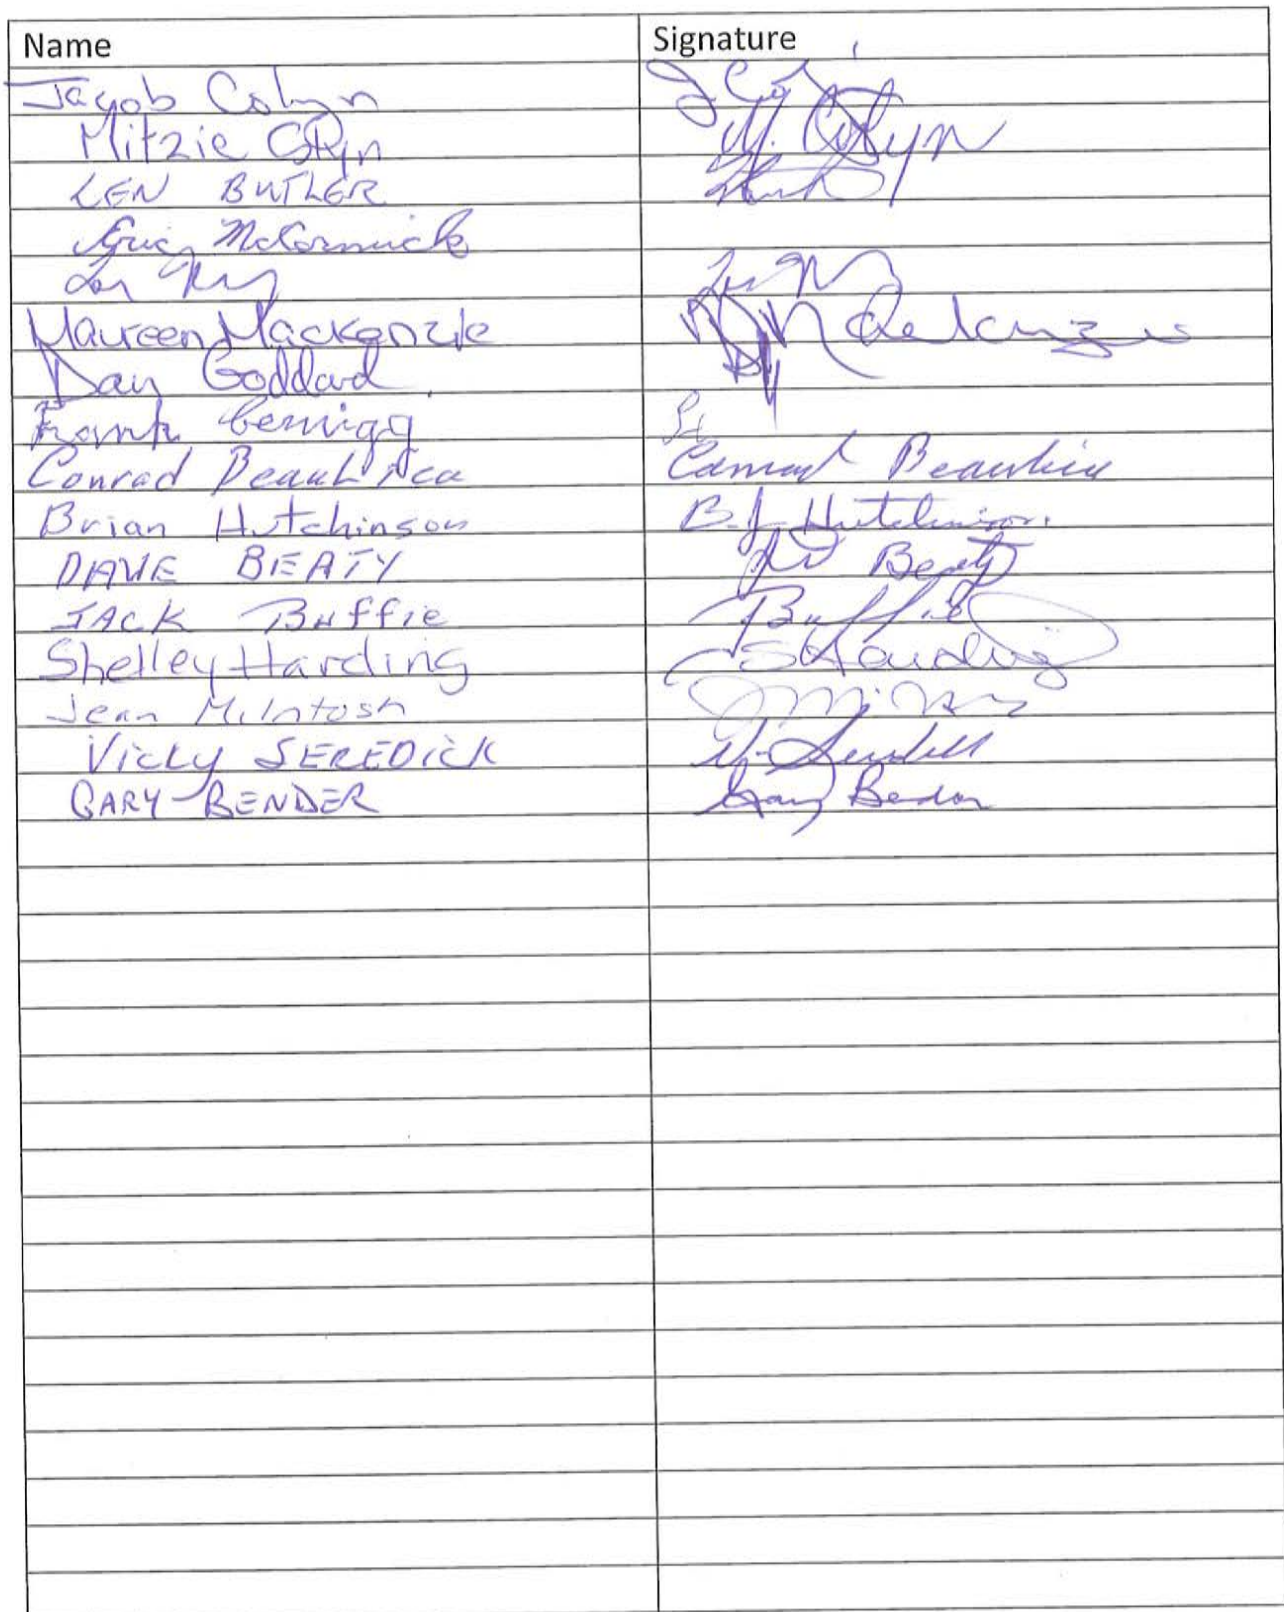 Name Signature
Jacob Colyn J Col
Mitzie Colyn M. Colyn
LEN BUTLER
Eric McCormick
Maureen Mackenzie M Mackenzie
Dan Goddard
Frank
Conrad Beaulieu Conrad Beaulieu
Brian Hutchinson B.J. Hutchinson
DAVE BEATY Beaty
JACK Buffie Buffie
Shelley Harding S Harding
Jean McIntosh
Vicky SEREDICK V.
GARY BENDER Gary Bender